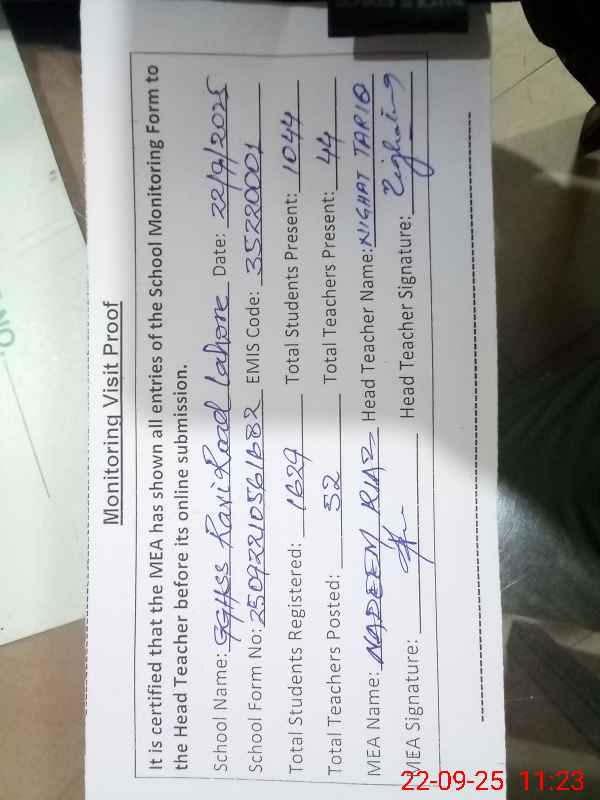 Monitoring Visit Proof
It is certified that the MEA has shown all entries of the School Monitoring Form to
the Head Teacher before its online submission.
School Name: GGHSS Ravi Road Lahore Date: 22/9/2025
School Form No: 25092210561682 EMIS Code: 35220001
Total Students Registered: 1629 Total Students Present: 1044
Total Teachers Posted: 52 Total Teachers Present: 44
MEA Name: NADEEM RIAZ Head Teacher Name: NIGHAT TARIQ
MEA Signature: Head Teacher Signature:
22-09-25 11:23